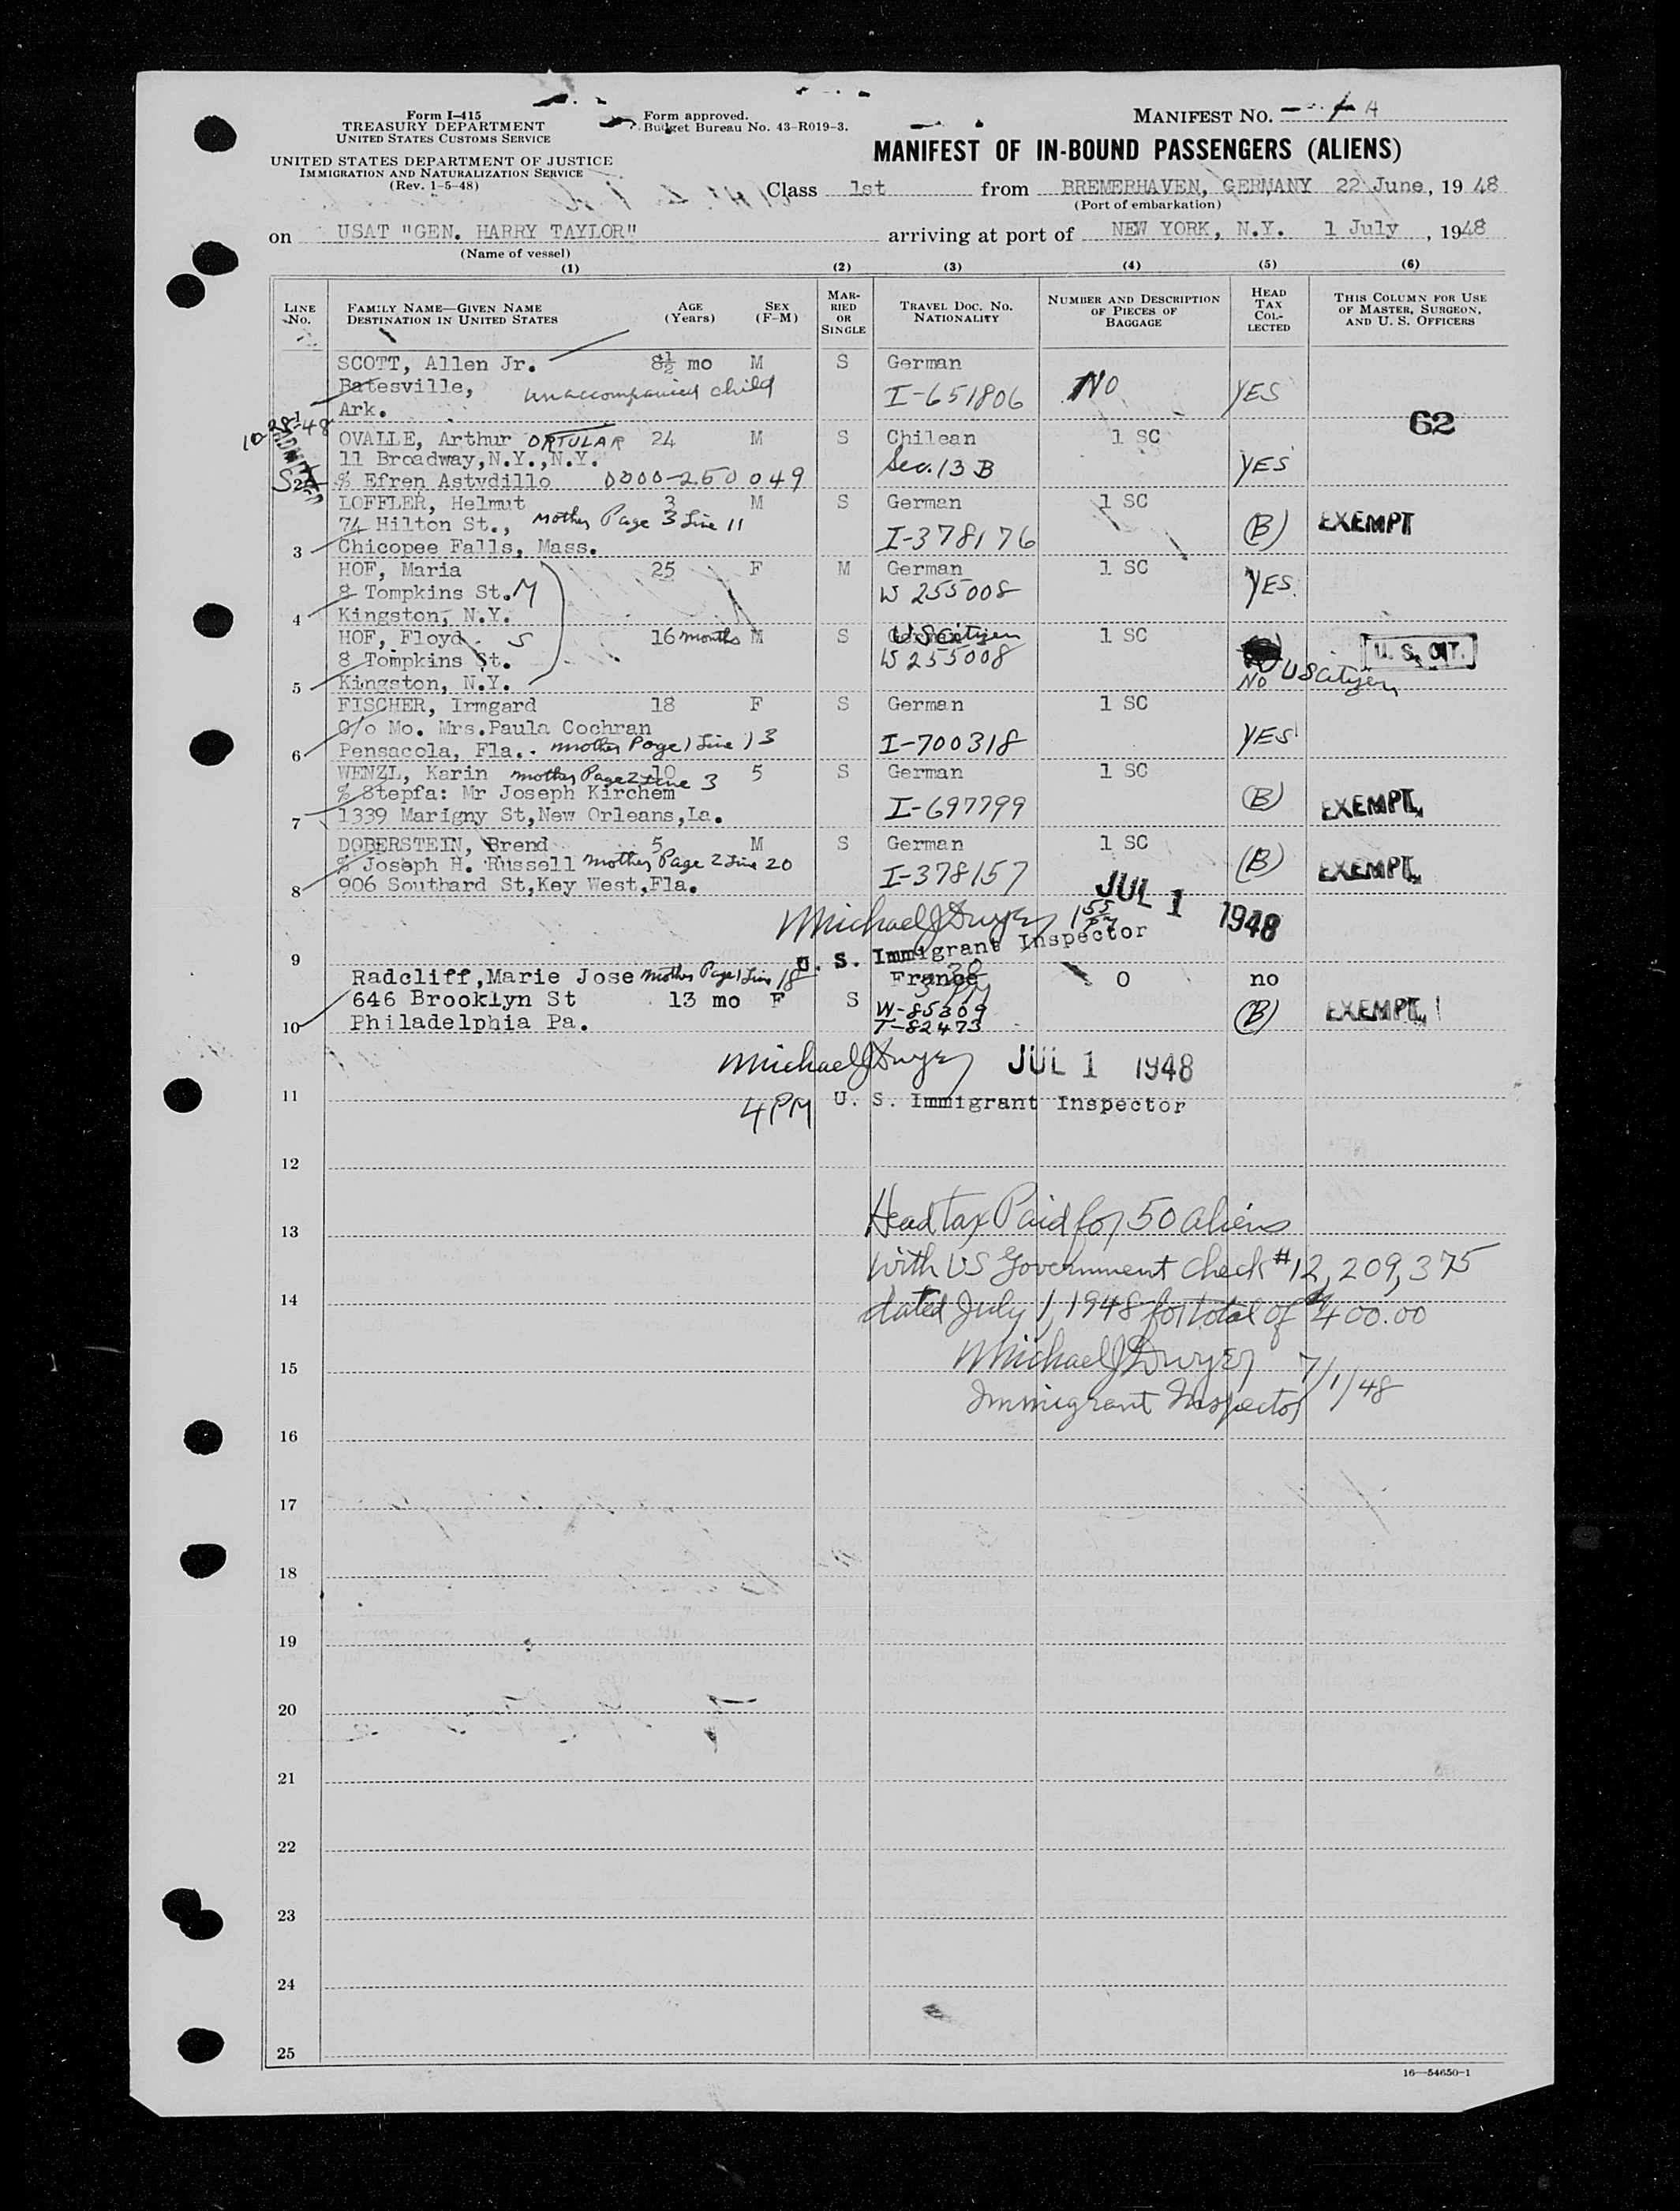 Form I-415
TREASURY DEPARTMENT
UNITED STATES CUSTOMS SERVICE
UNITED STATES DEPARTMENT OF JUSTICE
IMMIGRATION AND NATURALIZATION SERVICE
(Rev. 1-5-48)
Form approved.
Budget Bureau No. 43-R019-3.
MANIFEST NO. A
MANIFEST OF IN-BOUND PASSENGERS (ALIENS)
Class 1st from BREMERHAVEN, GERMANY 22 June, 19 48
(Port of embarkation)
on USAT "GEN. HARRY TAYLOR" arriving at port of NEW YORK, N.Y. 1 July, 19 48
(Name of vessel)
(1) (2) (3) (4) (5) (6)
LINE No. FAMILY NAME—GIVEN NAME DESTINATION IN UNITED STATES AGE (Years) SEX (F-M) MARRIED OR SINGLE TRAVEL DOC. NO. NATIONALITY NUMBER AND DESCRIPTION OF PIECES OF BAGGAGE HEAD TAX COLLECTED THIS COLUMN FOR USE OF MASTER, SURGEON, AND U. S. OFFICERS
SCOTT, Allen Jr. 8½ mo M S German
Batesville, unaccompanied child I-651806 NO YES
1 Ark.
62
10-28-48 ADMITTED
OVALLE, Arthur ORTULAR 24 M S Chilean 1 SC
11 Broadway, N.Y., N.Y. Sec. 13 B YES
2 % Efren Astvdillo 0000-250 049
LOFFLER, Helmut 3 M S German 1 SC
74 Hilton St., Mother Page 3 Line 11 I-378176 (B) EXEMPT
3 Chicopee Falls, Mass.
HOF, Maria 25 F M German 1 SC
8 Tompkins St. M W 255008 YES
4 Kingston, N.Y.
HOF, Floyd S 16 months M S US Citizen 1 SC
8 Tompkins St. W 255008 U. S. CIT.
5 Kingston, N.Y. NO US Citizen
FISCHER, Irmgard 18 F S German 1 SC
C/o Mo. Mrs. Paula Cochran
6 Pensacola, Fla. Mother Page 1 Line 13 I-700318 YES
WENZL, Karin Mother Page 2 Line 3 10 5 S German 1 SC
% Stepfa: Mr Joseph Kirchem I-697799 (B) EXEMPT
7 1339 Marigny St, New Orleans, La.
DOBERSTEIN, Brend 5 M S German 1 SC
% Joseph H. Russell Mother Page 2 Line 20 I-378157 (B) EXEMPT
8 906 Southard St, Key West, Fla.
Michael J Dwyer 1 55 PM JUL 1 1948
9 U. S. Immigrant Inspector
Radcliff, Marie Jose Mother Page 1 Line 18 France 0 no
646 Brooklyn St 13 mo F S W-85309 (B) EXEMPT
10 Philadelphia Pa. T-82473
Michael J Dwyer JUL 1 1948
11 4 PM U. S. Immigrant Inspector
12
13 Head tax Paid for 50 aliens
with US Government check #12,209,375
14 dated July 1, 1948 for total of $400.00
15 Michael J Dwyer 7/1/48
Immigrant Inspector
16
17
18
19
20
21
22
23
24
25
16—54650-1